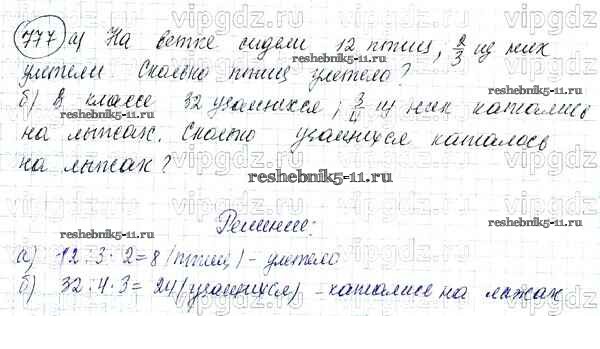 777 а) На ветке сидели 12 птиц, 2/3 из них
улетели. Сколько птиц улетело?
б) В классе 32 учащихся, 3/4 из них катались
на лыжах. Сколько учащихся каталось
на лыжах?
Решение:
а) 12 : 3 · 2 = 8 (птиц) - улетело
б) 32 : 4 · 3 = 24 (учащихся) - катались на лыжах
vipgdz.ru
reshebnik5-11.ru